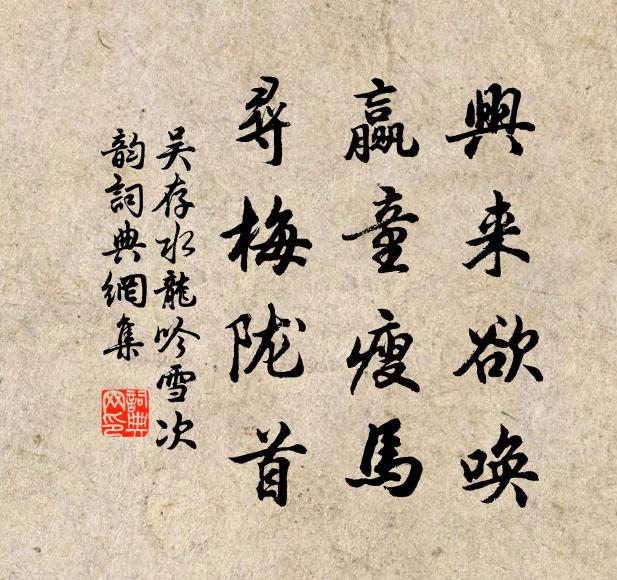 興来欲唤
羸童瘦馬
尋梅陇首
吴存水龍吟雪次
韵詞典網集
詞典網印